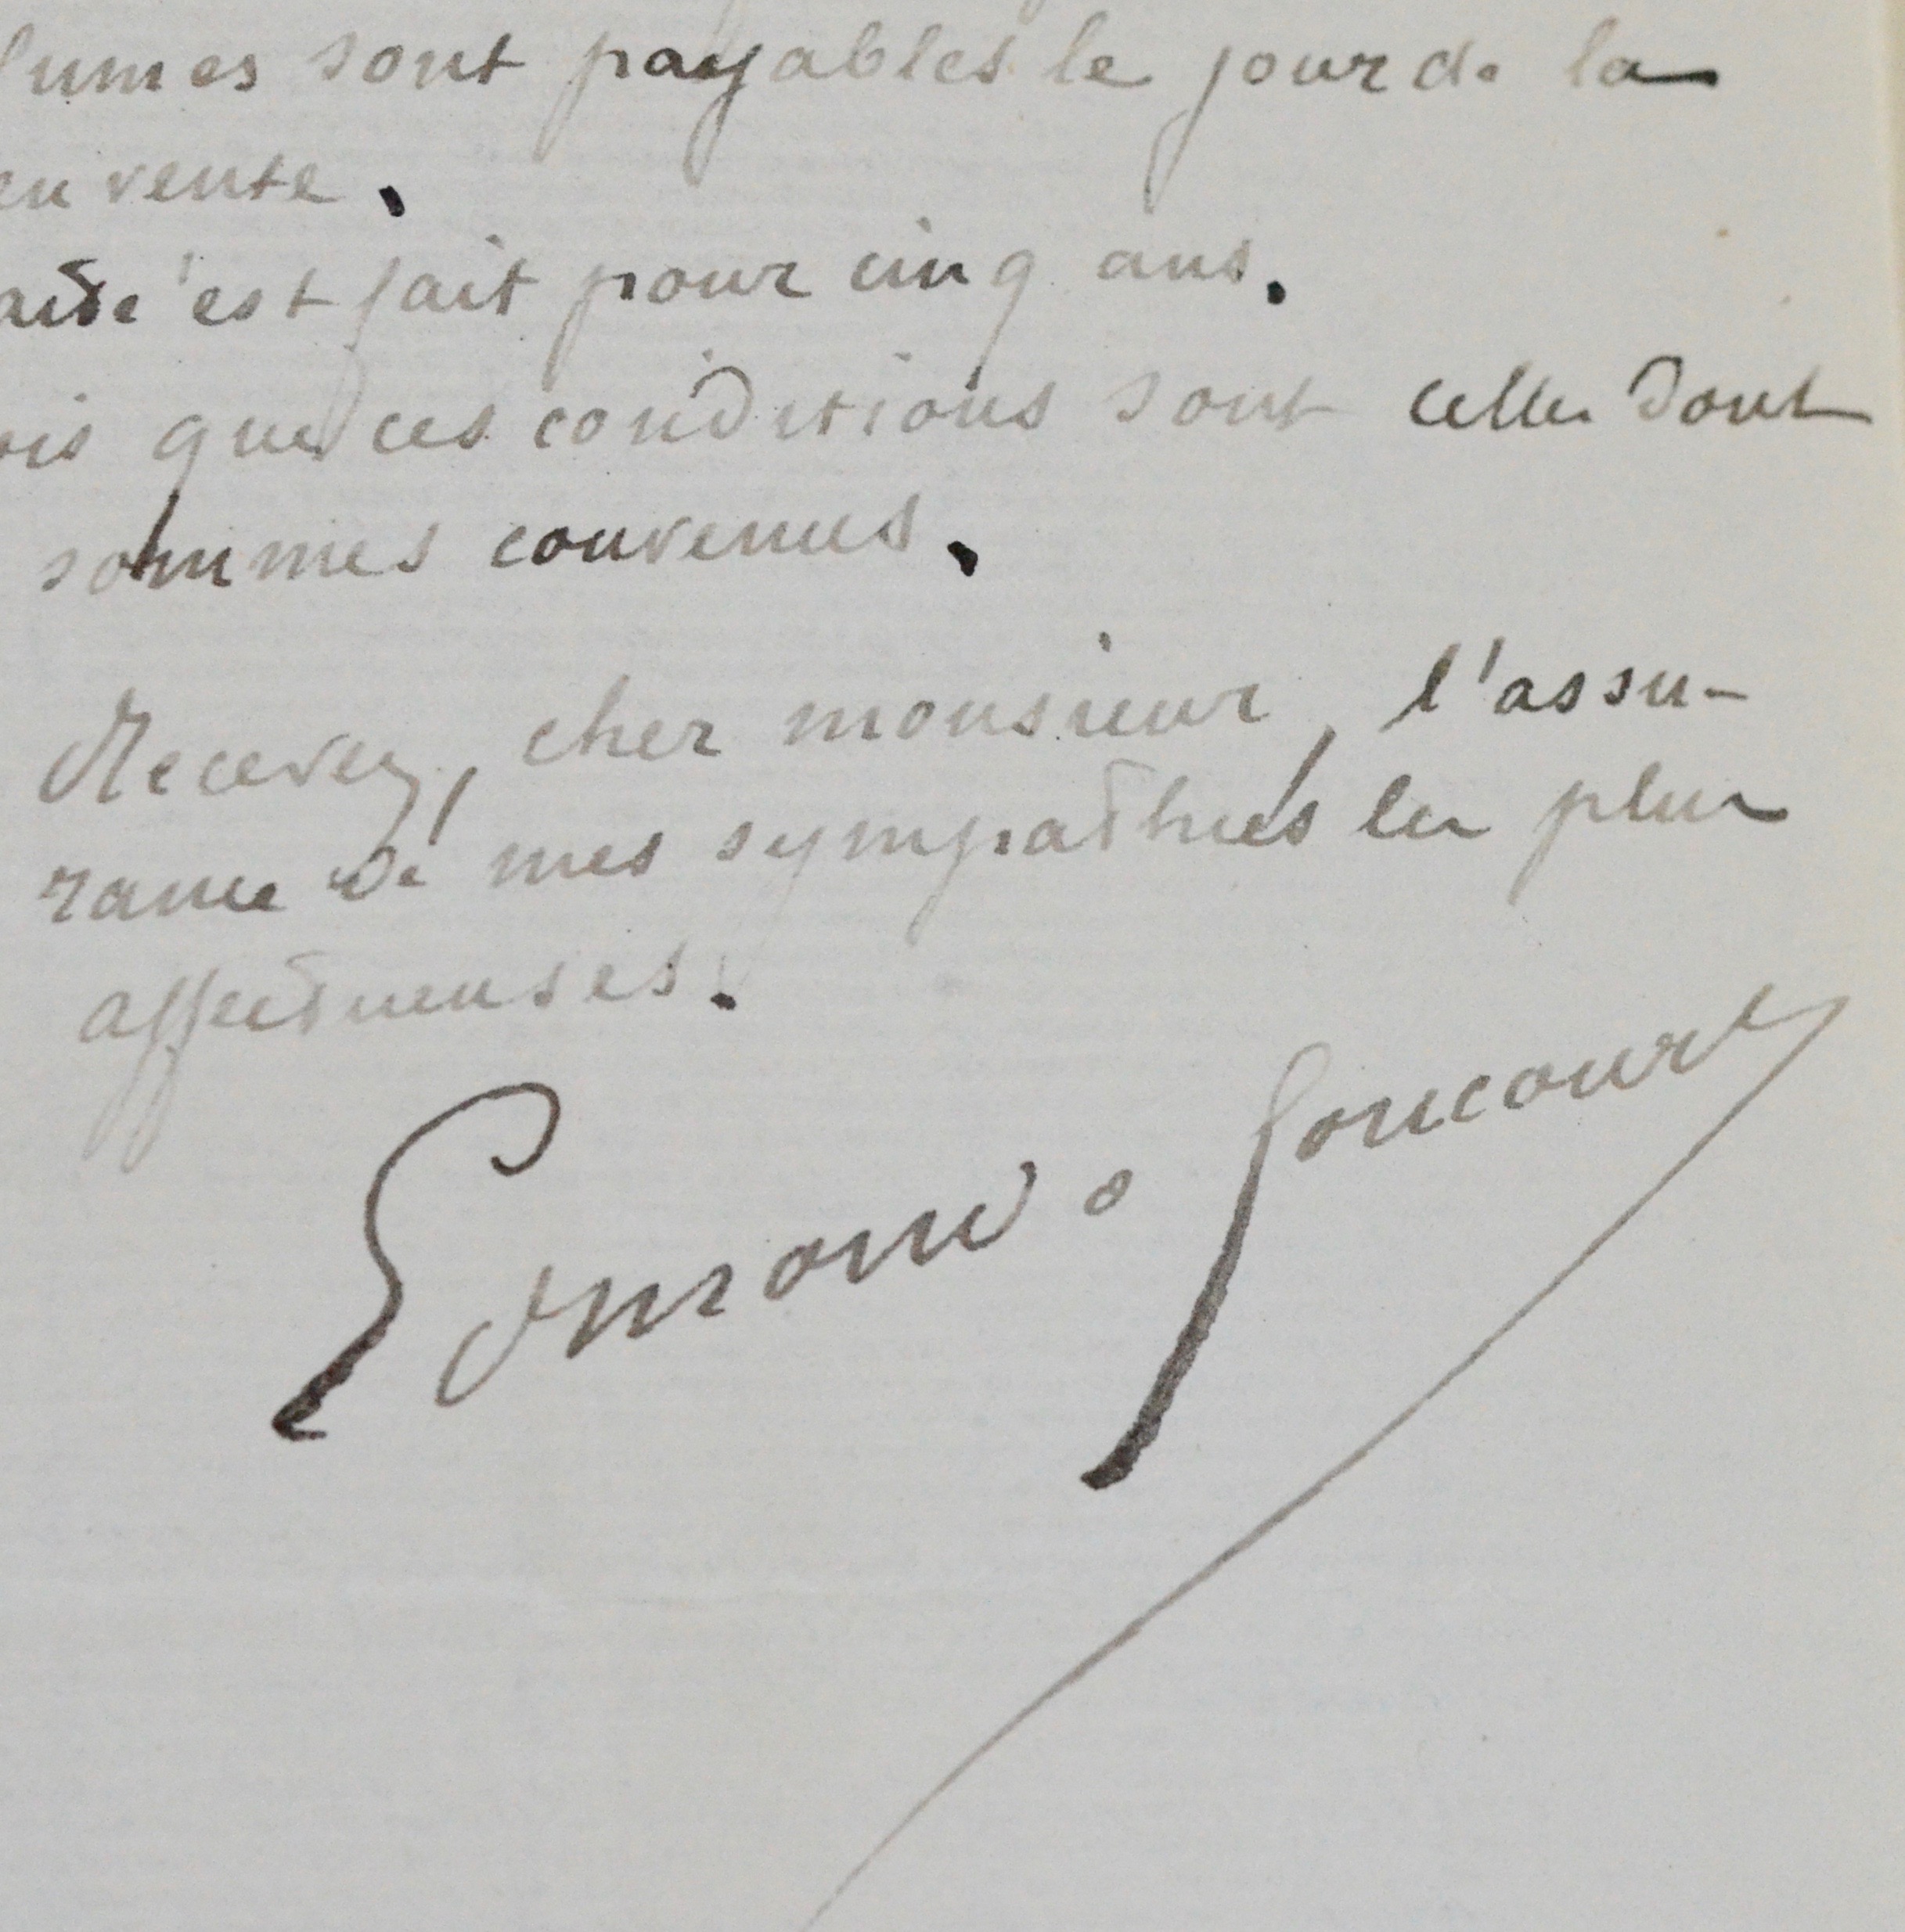 lumes sont payables le jour de la
en vente.
aité est fait pour cinq ans.
ois que ces conditions sont celles dont
sommes convenus.
Recevez, cher monsieur, l'assu-
rance de mes sympathies les plus
affectueuses.
Edmond de Goncourt